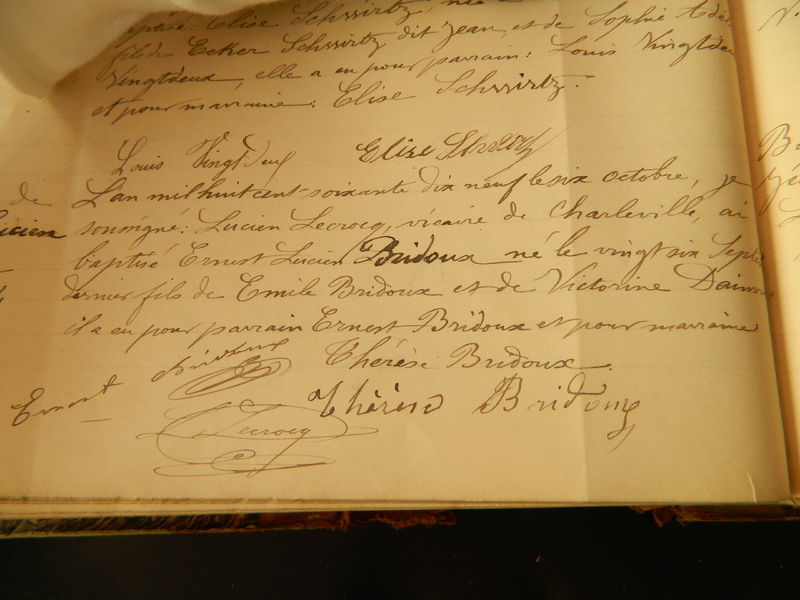 baptisé: Elise Schwirtz, née
fils de Ecker Schwirtz dit jean, et de Sophie
Vingtdeux, elle a eu pour parrain: Louis Vingtdeux
et pour marraine: Elise Schwirtz.
Louis Vingtdeux Elise Schwirtz
L'an mil huit cent soixante dix neuf le six octobre, je
de soussigné: Lucien Lecrocq, vicaire de Charleville, ai
Lucien baptisé Ernest Lucien Bridoux né le vingt six Sept
dernier fils de Emile Bridoux et de Victorine
il a eu pour parrain Ernest Bridoux et pour marraine
Thérèse Bridoux.
Ernest Bridoux Thérèse Bridoux
Lecrocq